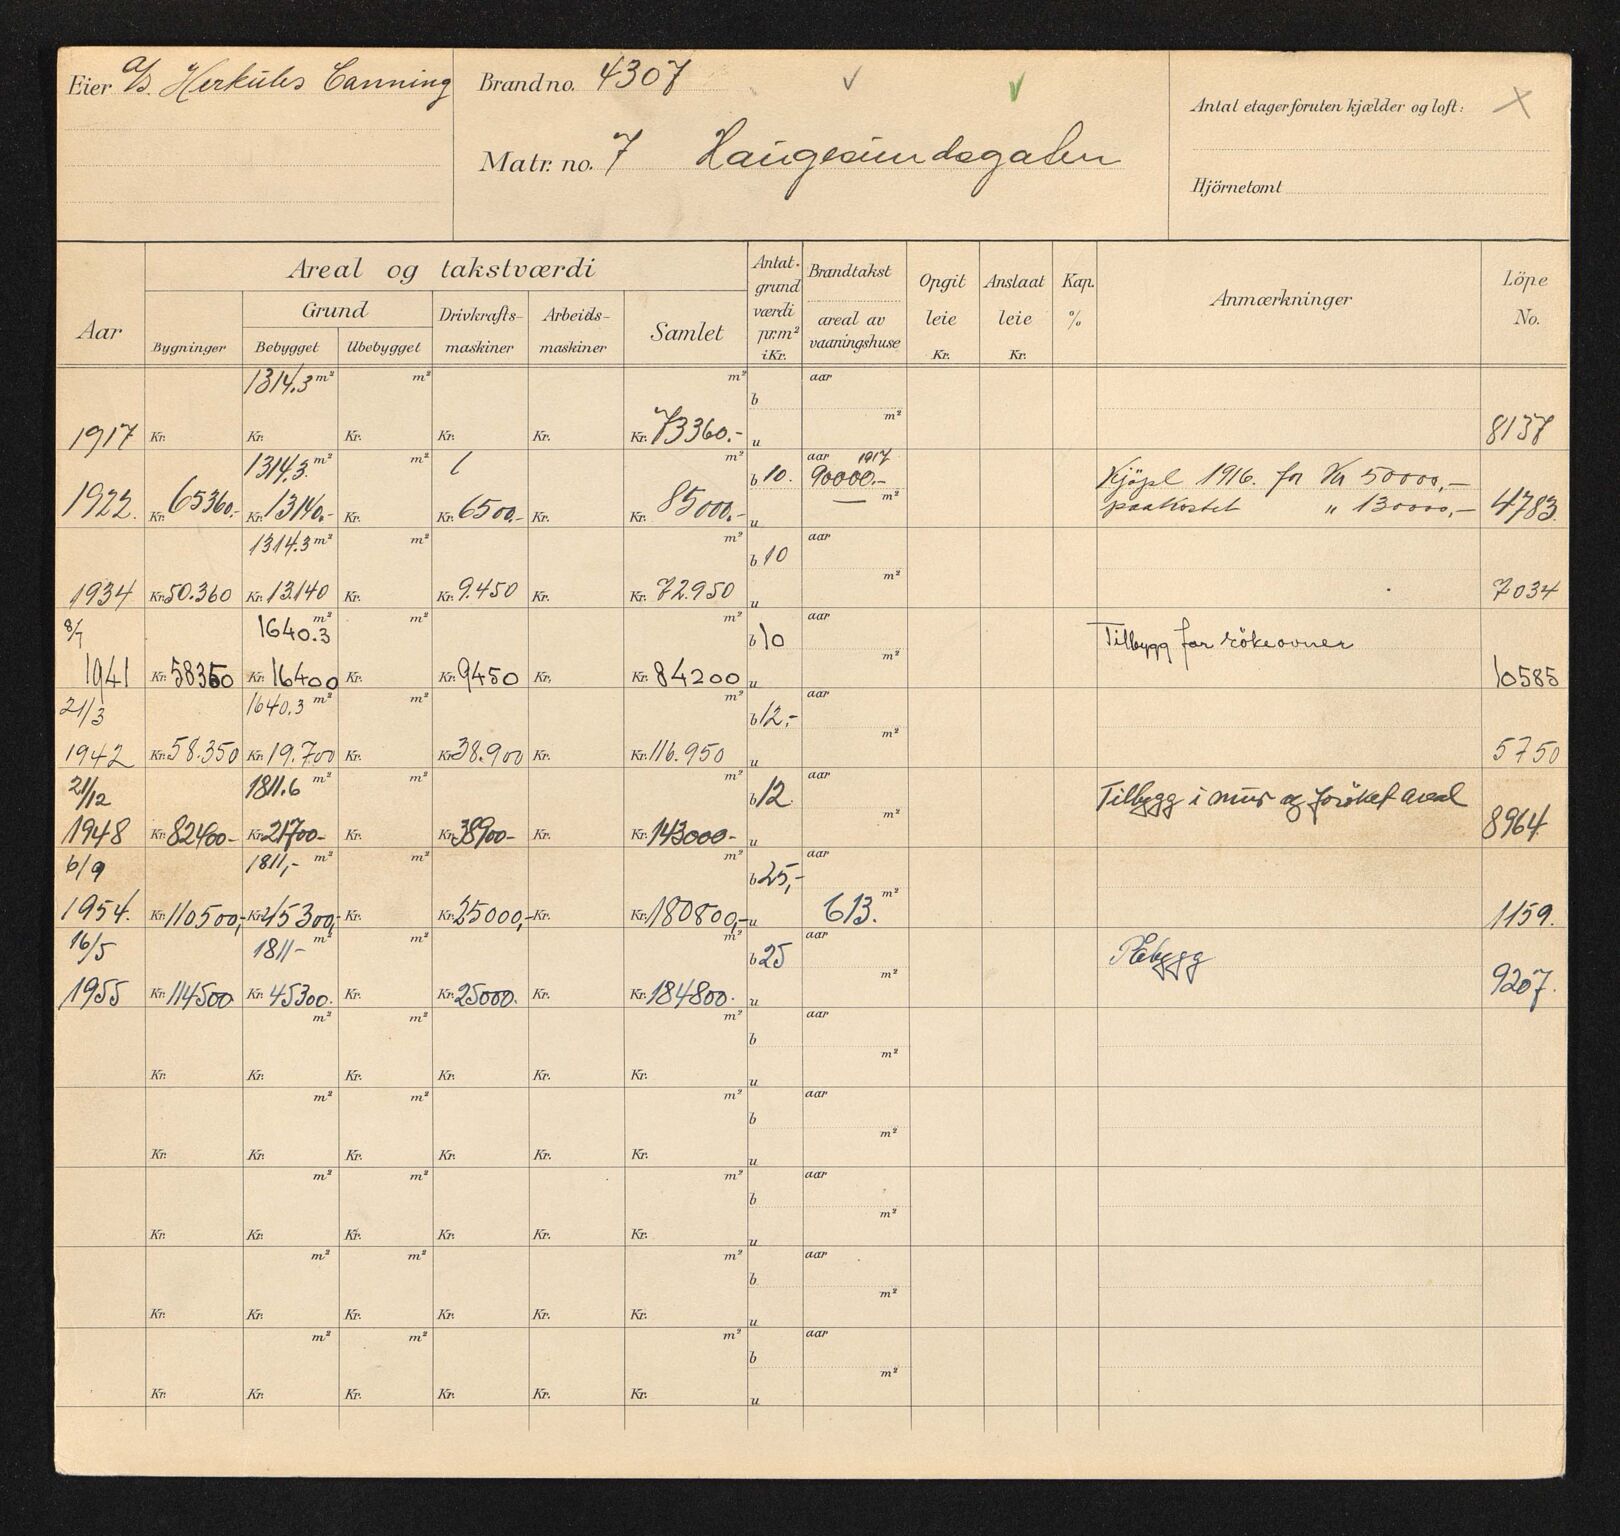 Eier A/S. Herkules Canning
Brandno. 4307
Matr. no. 7 Haugesundsgaten
Antal etager foruten kjælder og loft: X
Hjörnetomt
Aar
Areal og takstværdi
Bygninger
Grund
Bebygget Ubebygget
Drivkrafts-
maskiner
Arbeids-
maskiner
Samlet
Antat.
grund
værdi
pr.m²
i Kr.
Brandtakst
areal av
vaaningshuse
Opgit
leie
Kr.
Anslaat
leie
Kr.
Kap.
%
Anmærkninger
Löpe
No.
1314.3 m² m² m² b aar
m²
1917 Kr. Kr. Kr. Kr. Kr. Kr. 73360.- u 8137
1314.3 m² m² m² b 10. aar 1917
90000.- Kjöpt 1916. for Kr 50000,-
1922. Kr. 65360.- Kr. 13140.- Kr. Kr. 6500.- Kr. Kr. 85000.- u m² paakostet " 130000,- 4783.
1314.3 m² m² m² b 10 aar
m²
1934 Kr. 50.360 Kr. 13.140 Kr. Kr. 9.450 Kr. Kr. 72.950 u 7034
8/7 1640.3 m² m² m² b 10 aar Tilbygg for rökeovner
m²
1941 Kr. 58350 Kr. 16400 Kr. Kr. 9450 Kr. Kr. 84200 u 10585
21/3 1640.3 m² m² m² b 12,- aar
m²
1942 Kr. 58.350 Kr. 19.700 Kr. Kr. 38.900 Kr. Kr. 116.950 u 5750
21/12 1811.6 m² m² m² b 12 aar Tilbygg i mur og forøket areal
m²
1948 Kr. 82400- Kr. 21700- Kr. Kr. 38900- Kr. Kr. 143000- u 8964
6/9 1811,- m² m² m² b 25,- aar
m²
1954. Kr. 110500,- Kr. 45300,- Kr. Kr. 25000,- Kr. Kr. 180800,- u 613. 1159.
16/5 1811- m² m² m² b 25 aar Påbygg
m²
1955 Kr. 114500 Kr. 45300. Kr. Kr. 25000. Kr. Kr. 184800. u 9207.
m² m² m² b aar
m²
Kr. Kr. Kr. Kr. Kr. Kr. u
m² m² m² b aar
m²
Kr. Kr. Kr. Kr. Kr. Kr. u
m² m² m² b aar
m²
Kr. Kr. Kr. Kr. Kr. Kr. u
m² m² m² b aar
m²
Kr. Kr. Kr. Kr. Kr. Kr. u
m² m² m² b aar
m²
Kr. Kr. Kr. Kr. Kr. Kr. u